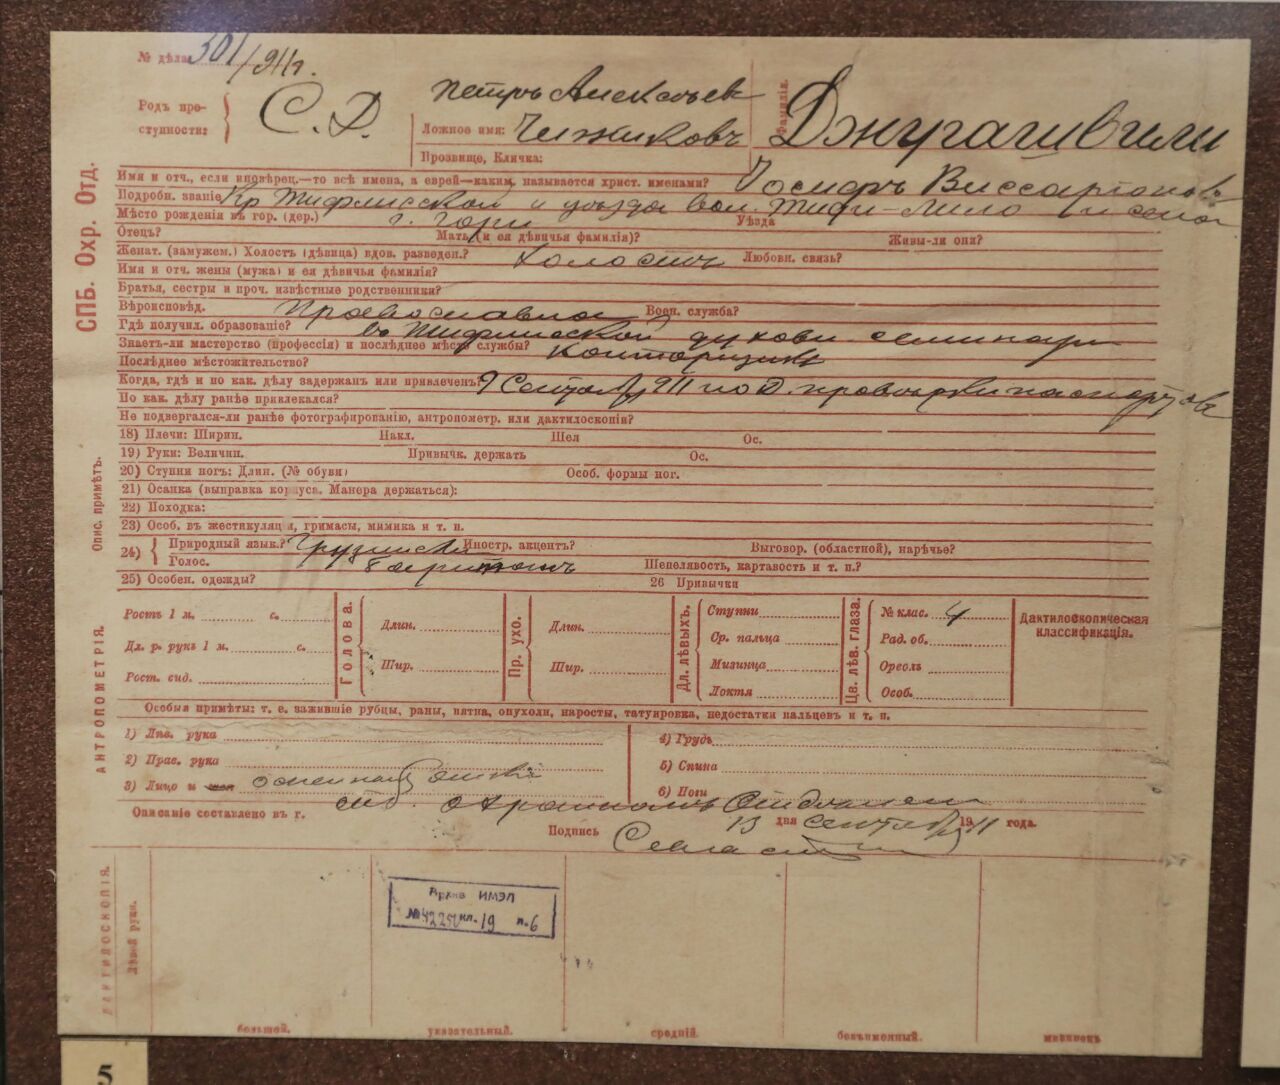 № дѣла 301/911г.
Родъ пре-
ступности: С.Д.
Петръ Алексѣевъ
Ложное имя: Чижиковъ
Прозвище, Кличка:
Фамилія. Джугашвили
Имя и отч., если иновѣрец.—то всѣ имена, а еврей—каким. называется христ. именами? Іосифъ Виссаріонов.
Подробн. званіе Кр Тифлисской и уѣзда сел.
Мѣсто рожденія въ гор. (дер.) г. Гори Уѣзда
Отецъ? Мать (и ея дѣвичья фамилія)? Живы-ли они?
Женат. (замужем.) Холостъ (дѣвица) вдов. разведен.? холостъ Любовн. связь?
Имя и отч. жены (мужа) и ея дѣвичья фамилія?
Братья, сестры и проч. извѣстные родственники?
Вѣроисповѣд. Православное Воен. служба?
Гдѣ получил. образованіе? въ Тифлисской духовн. семинаріи
Знаетъ-ли мастерство (профессія) и послѣднее мѣсто службы? конторщикъ
Послѣднее мѣстожительство?
Когда, гдѣ и по как. дѣлу задержан или привлеченъ? 9 Сентября 911 по д. провѣрки паспортовъ
По как. дѣлу ранѣе привлекался?
Не подвергался-ли ранѣе фотографированію, антропометр. или дактилоскопіи?
18) Плечи: Ширин. Накл. Шея Ос.
19) Руки: Величин. Привычк. держать Ос.
20) Ступни ногъ: Длин. (№ обуви) Особ. формы ног.
21) Осанка (выправка корпуса. Манера держаться):
22) Походка:
23) Особ. въ жестикуляціи, гримасы, мимика и т. п.
24) Природный язык.? Грузинскій Иностр. акцентъ? Выговор. (областной), нарѣчье?
Голос. баритонъ Шепелявость, картавость и т. п.?
25) Особен. одежды? 26 Привычки
СПБ. Охр. Отд.
Опис. примѣтъ.
АНТРОПОМЕТРІЯ.
Ростъ 1 м. с.
Дл. р. рукъ 1 м. с.
Рост. сид.
Голова.
Длин.
Шир.
Пр. ухо.
Длин.
Шир.
Дл. лѣвыхъ.
Ступни
Ср. пальца
Мизинца
Локтя
Цв. лѣв. глаза.
№ клас. 4
Рад. об.
Ореолъ
Особ.
Дактилоскопическая
классификація.
Особыя примѣты: т. е. зажившіе рубцы, раны, пятна, опухоли, наросты, татуировка, недостатки пальцевъ и т. п.
1) Лѣв. рука
2) Прав. рука
3) Лицо и шея
4) Грудь
5) Спина
6) Ноги
Описаніе составлено въ г. 13 дня сентября 1911 года.
Подпись
ДАКТИЛОСКОПІЯ.
Лѣвой руки.
Архив ИМЭЛ
большой. указательный. средній. безымянный. мизинецъ
5